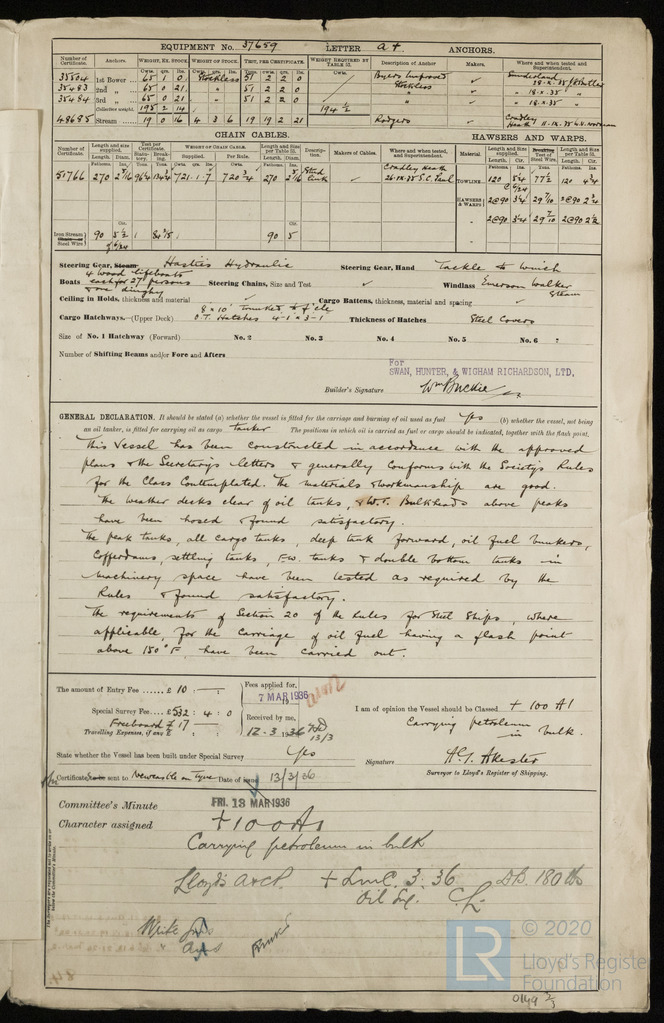 EQUIPMENT No. 37659 LETTER a† ANCHORS.
Number of Certificate. Anchors. WEIGHT, EX. STOCK WEIGHT OF STOCK. TEST, PER CERTIFICATE. WEIGHT REQUIRED BY TABLE 53. Description of Anchor Makers. Where and when tested and Superintendent.
Cwts. qrs. lbs.
35504 1st Bower 65 1 0 Stockless 51 2 2 0 Byers Improved Sunderland
35483 2nd 〃 65 0 21 〃 51 2 2 0 Stockless 〃 18.X.35
35484 3rd 〃 65 0 21 51 2 2 0 〃 18.X.35 〃
Collective weight. 195 2 14 194½
48685 Stream 19 0 16 4 3 6 19 19 2 21 Rodgers Cradley Heath
CHAIN CABLES. HAWSERS AND WARPS.
Number of Certificate. Length and size supplied. Test per Certificate. WEIGHT OF CHAIN CABLE. Length and Size per Table 53. Description. Makers of Cables. Where and when tested, and Superintendent. Material Length and Size supplied. Breaking Test of Steel Wire. Length and Size per Table 53.
Length. Diam. Statutory. Breaking. Supplied. Per Rule. Length. Diam. Length. Cir. Length. Cir.
51766 270 2 5/16 96¼ 134¾ 721.1.7 720¾ 270 2 5/16 Stud Link Cradley Heath 26.IX.35 S.C. Paul TOWLINE 120 5¼ 77½ 120 4¾
HAWSERS & WARPS 2@90 3¼ 29 7/10 2@90 2¾
〃 2@90 3¼ 29 7/10 2@90 2½
Iron Stream Chain or Steel Wire. 90 5½ 90 5
6/24
Steering Gear, Steam Hastie's Hydraulic Steering Gear, Hand Tackle to Winch
Boats 4 wood lifeboats each for 27 persons & one dinghy Steering Chains, Size and Test Windlass Emerson Walker Steam
Ceiling in Holds, thickness and material Cargo Battens, thickness, material and spacing
Cargo Hatchways.—(Upper Deck) 8' x 10' trunked to f'cle O.T. Hatches 4-1 x 3-1 Thickness of Hatches Steel Covers
Size of No. 1 Hatchway (Forward) No. 2 No. 3 No. 4 No. 5 No. 6
Number of Shifting Beams and/or Fore and Afters
For
SWAN, HUNTER, & WIGHAM RICHARDSON, LTD.
Builder's Signature
GENERAL DECLARATION. It should be stated (a) whether the vessel is fitted for the carriage and burning of oil used as fuel Yes (b) whether the vessel, not being
an oil tanker, is fitted for carrying oil as cargo tanker The positions in which oil is carried as fuel or cargo should be indicated, together with the flash point.
This Vessel has been constructed in accordance with the approved
plans & the Secretary's letters & generally conforms with the Society's Rules
for the Class Contemplated. The materials & workmanship are good.
The weather decks clear of oil tanks, & W.T. Bulkheads above peaks
have been hosed & found satisfactory.
The peak tanks, all cargo tanks, deep tank forward, oil fuel bunkers,
Cofferdams, settling tanks, F.W. tanks & double bottom tanks in
Machinery space have been tested as required by the
Rules & found satisfactory.
The requirements of Section 20 of the Rules for Steel Ships, where
applicable, for the carriage of oil fuel having a flash point
above 150°F, have been carried out.
The amount of Entry Fee £ 10 : - : Fees applied for, 7 MAR 1936
Special Survey Fee £532 : 4 : 0
Freeboard £ 17 : - Received by me,
Travelling Expenses, if any £ 12.3.1936 13/3
I am of opinion the Vessel should be Classed + 100 A1
Carrying petroleum
in bulk.
State whether the Vessel has been built under Special Survey Yes
Signature
Surveyor to Lloyd's Register of Shipping.
Certificate sent to Newcastle on Tyne Date of issue 13/3/36
Committee's Minute FRI. 13 MAR 1936
Character assigned +100A1
Carrying petroleum in bulk
Lloyd's A&CP. + LMC 3.36 DB. 180 lbs
Oil Eng. CL
Write
© 2020
LR
Lloyd's Register
Foundation
0149 2/3